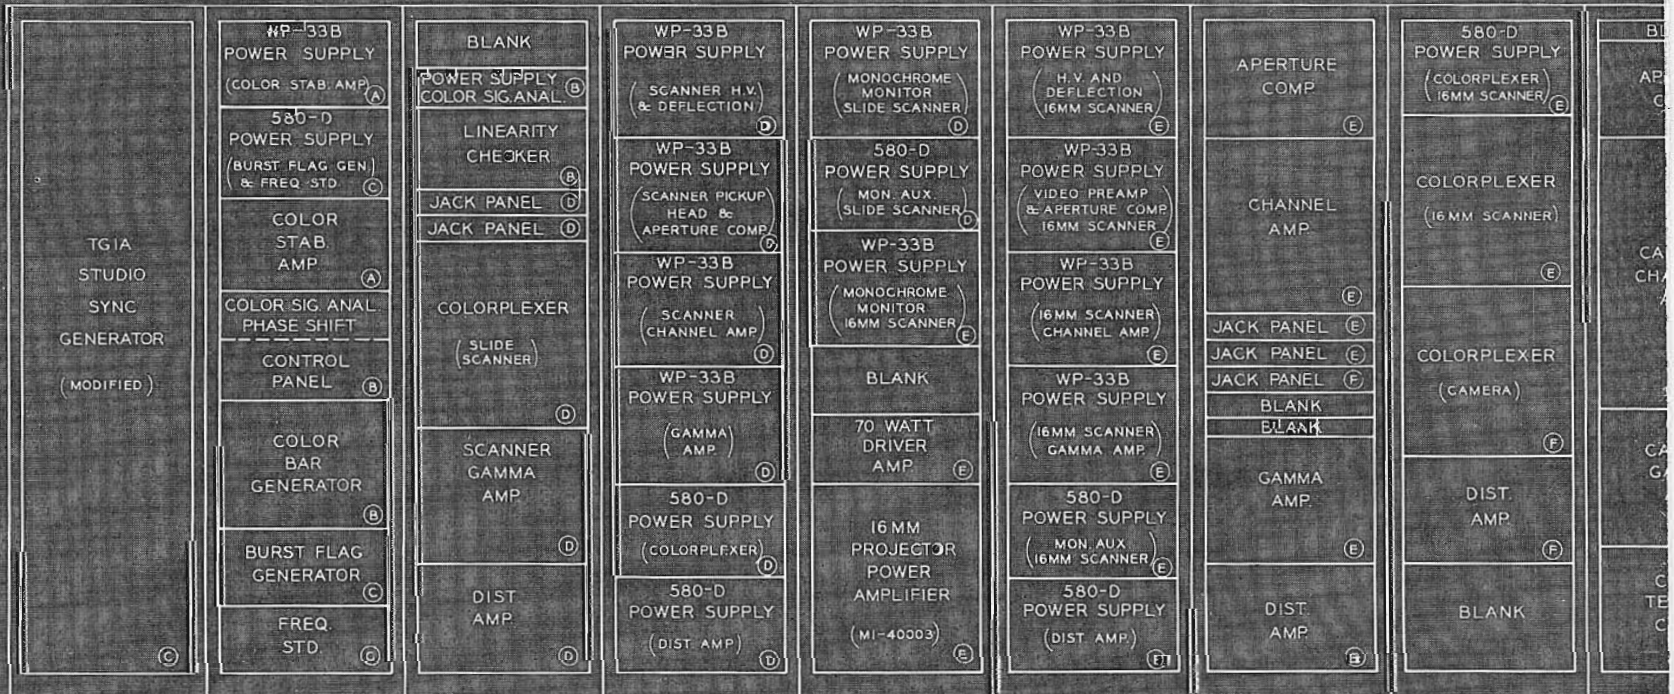 TG1A
STUDIO
SYNC
GENERATOR
(MODIFIED)
C
WP-33B
POWER SUPPLY
(COLOR STAB. AMP)
A
580-D
POWER SUPPLY
(BURST FLAG GEN.
& FREQ. STD.)
C
COLOR
STAB.
AMP
A
COLOR SIG. ANAL.
PHASE SHIFT
CONTROL
PANEL
B
COLOR
BAR
GENERATOR
B
BURST FLAG
GENERATOR
C
FREQ.
STD.
C
BLANK
POWER SUPPLY
COLOR SIG. ANAL.
B
LINEARITY
CHECKER
B
JACK PANEL D
JACK PANEL D
COLORPLEXER
(SLIDE
SCANNER)
D
SCANNER
GAMMA
AMP
D
DIST
AMP
D
WP-33B
POWER SUPPLY
(SCANNER H.V.
& DEFLECTION)
D
WP-33B
POWER SUPPLY
(SCANNER PICKUP
HEAD &
APERTURE COMP)
D
WP-33B
POWER SUPPLY
(SCANNER
CHANNEL AMP)
D
WP-33B
POWER SUPPLY
(GAMMA
AMP.)
D
580-D
POWER SUPPLY
(COLORPLEXER)
D
580-D
POWER SUPPLY
(DIST AMP)
D
WP-33B
POWER SUPPLY
(MONOCHROME
MONITOR
SLIDE SCANNER)
D
580-D
POWER SUPPLY
(MON. AUX.
SLIDE SCANNER)
D
WP-33B
POWER SUPPLY
(MONOCHROME
MONITOR
16MM SCANNER)
E
BLANK
70 WATT
DRIVER
AMP.
E
16MM
PROJECTOR
POWER
AMPLIFIER
(MI-40003)
E
WP-33B
POWER SUPPLY
(H.V. AND
DEFLECTION
16MM SCANNER)
E
WP-33B
POWER SUPPLY
(VIDEO PREAMP
& APERTURE COMP
16MM SCANNER)
E
WP-33B
POWER SUPPLY
(16MM SCANNER
CHANNEL AMP.)
E
WP-33B
POWER SUPPLY
(16MM SCANNER
GAMMA AMP.)
E
580-D
POWER SUPPLY
(MON. AUX
16MM SCANNER)
E
580-D
POWER SUPPLY
(DIST AMP.)
E
APERTURE
COMP
E
CHANNEL
AMP
E
JACK PANEL E
JACK PANEL E
JACK PANEL F
BLANK
BLANK
GAMMA
AMP.
E
DIST.
AMP.
E
580-D
POWER SUPPLY
(COLORPLEXER
16MM SCANNER)
E
COLORPLEXER
(16MM SCANNER)
E
COLORPLEXER
(CAMERA)
F
DIST.
AMP.
F
BLANK